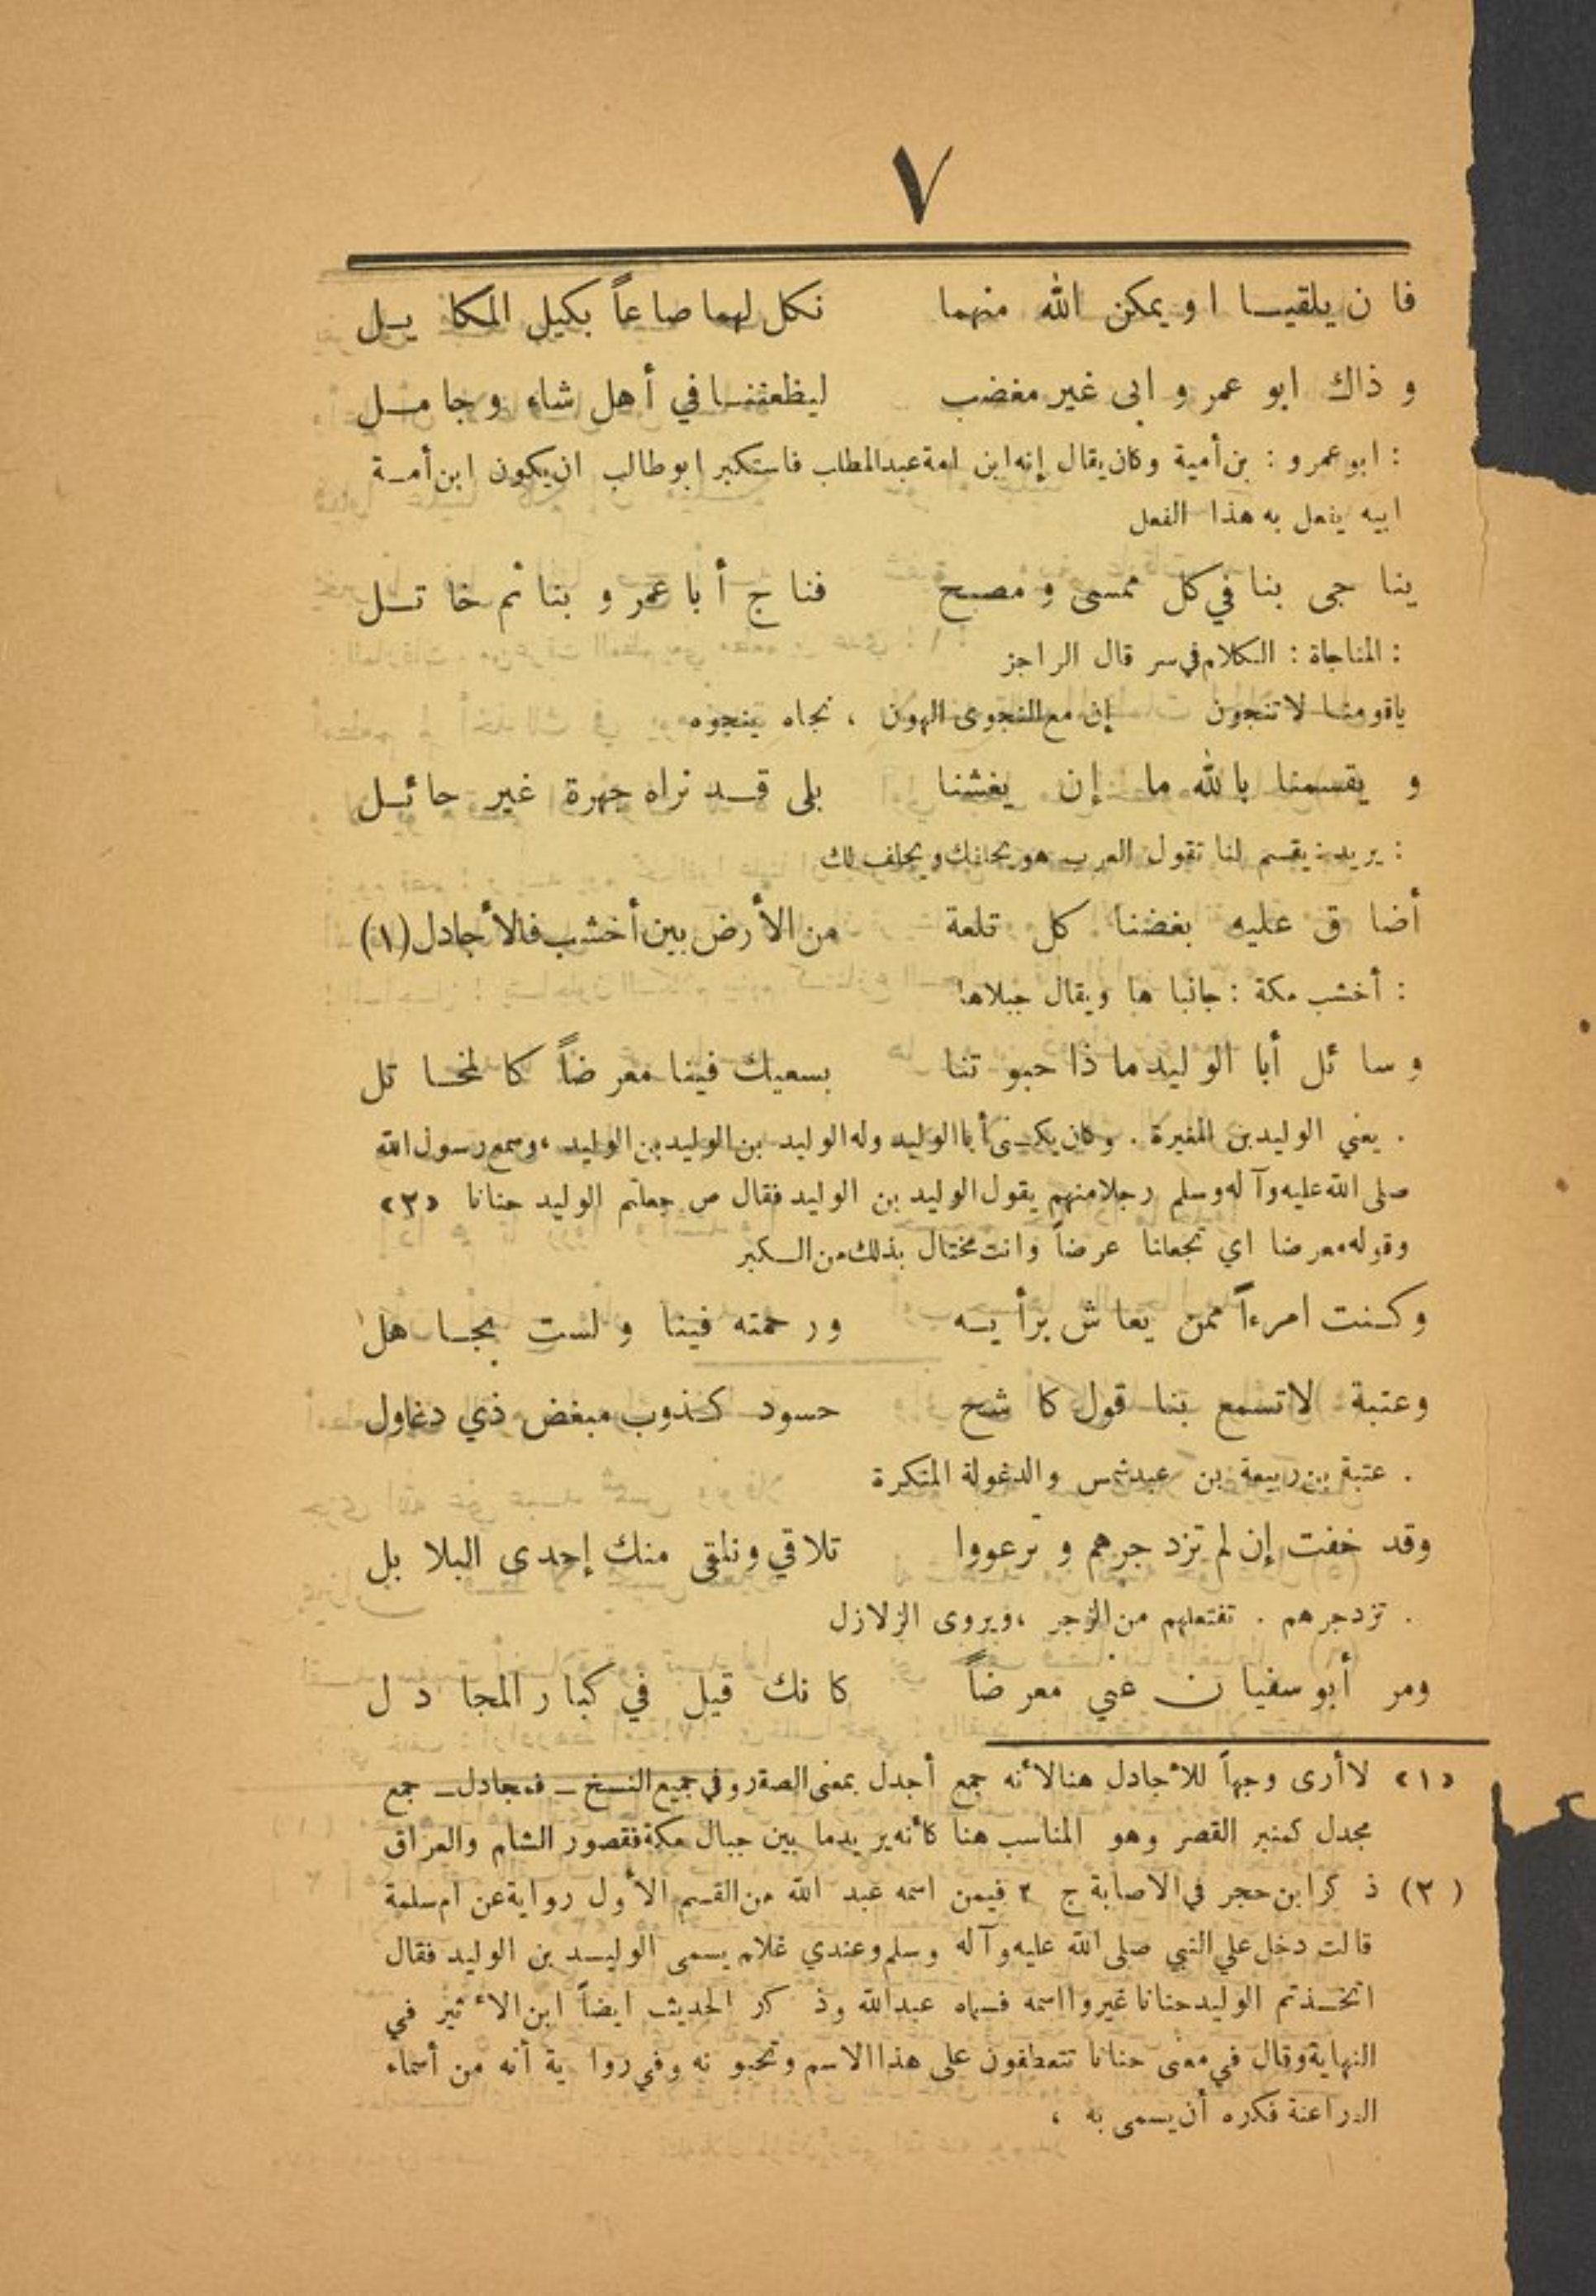 ٧
فان يلقيا او يمكن الله منهما نكل لهما صاعاً بكيل المكايل
وذاك ابو عمرو ابى غير مغضب ليظعننا في أهل شاء وجامل
: ابو عمرو : بن أمية وكان يقال إنه ابن امة عبدالمطلب فاستكبر ابو طالب ان يكون ابن أمة
ابيه يفعل به هذا الفعل
يناجى بنا في كل ممسى ومصبح فناج أبا عمرو بنا ثم خاتل
: المناجاة : الكلام في سر قال الراجز
ياقومنا لا تنجون إن مع النجوى الهون ، نجاه ينجوه
ويقسمنا بالله ما إن يغشنا بلى قد نراه جهرة غير حائل
: يريد : يقسم لنا تقول العرب هو يحلفك ويحلف لك
أضاق عليه بغضنا كل تلعة من الأرض بين أخشب فالأجادل (١)
: أخشب مكة : جانباها ويقال جبلاها
وسائل أبا الوليد ماذا حبوتنا بسعيك فينا معرضاً كالمخاتل
. يعني الوليد بن المغيرة . وكان يكنى أبا الوليد وله الوليد بن الوليد بن الوليد ، وسمع رسول الله
صلى الله عليه وآله وسلم رجلا منهم يقول الوليد بن الوليد فقال ص جعلتم الوليد حنانا «٢»
وقوله معرضا اي تجعلنا عرضاً وانت مختال بذلك من الكبر
وكنت امرءاً ممن يعاش برأيه ورحمته فينا ولست بجاهل
وعتبة لا تسمع بنا قول كاشح حسود كذوب مبغض ذي دغاول
. عتبة بن ربيعة بن عبد شمس والدغولة المنكرة
وقد خفت إن لم تزدجرهم وترعووا تلاقي ونلقى منك إحدى البلابل
. تزدجرهم . تفتعلهم من الزجر ، ويروى الزلازل
ومر أبو سفيان عني معرضاً كانك قيل في كبار المجادل
«١» لا أرى وجهاً للأجادل هنا لأنه جمع أجدل بمعنى الصقر وفي جميع النسخ ـ فمجادل ـ جمع
مجدل كمنبر القصر وهو المناسب هنا كأنه يريد ما بين جبال مكة فقصور الشام والعراق
(٢) ذكر ابن حجر في الاصابة ج ٢ فيمن اسمه عبد الله من القسم الأول رواية عن ام سلمة
قالت دخل علي النبي صلى الله عليه وآله وسلم وعندي غلام يسمى الوليد بن الوليد فقال
اتخذتم الوليد حنانا غيروا اسمه فسماه عبدالله وذكر الحديث ايضاً ابن الأثير في
النهاية وقال في معنى حنانا تتعطفون على هذا الاسم وتحبونه وفي رواية أنه من أسماء
الفراعنة فكره أن يسمى به ،